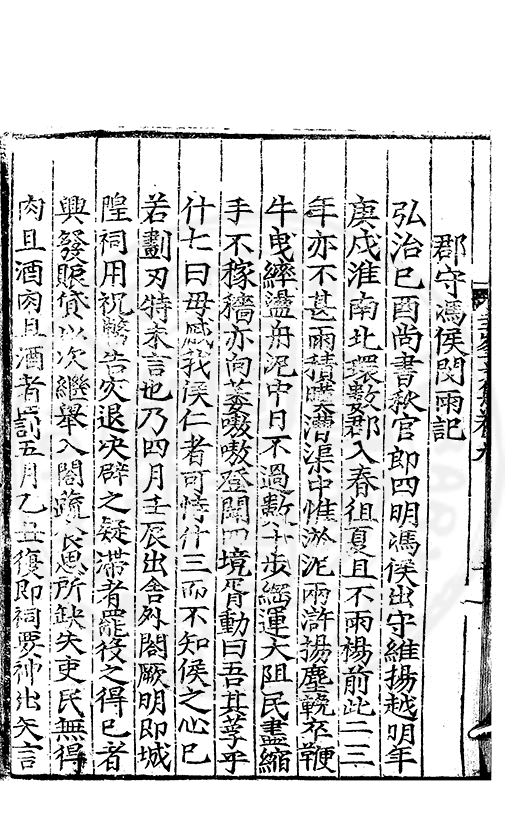 郡守馮侯閔雨記
弘治己酉尚書秋官郎四明馮侯出守維揚越明年
庚戌淮南北環數郡入春徂夏且不雨楊前此二三
年亦不甚雨積暵漕渠中惟淤泥兩滸揚塵輓卒鞭
牛曳縴盪舟泥中日不過數十步綱運大阻民盡縮
手不稼穡亦向萎嗷嗷登聞四境胥動曰吾其莩乎
什七曰毋慼我侯仁者可恃什三而不知侯之心已
若劃刃特未言也乃四月壬辰出舍外閤厥明即城
隍祠用祝幣告灾退决辟之疑滯者罷役之得已者
興發賑貸以次繼舉入閤疏食思所缺失吏民無得
肉且酒肉且酒者罰五月乙丑復即祠要神出矢言